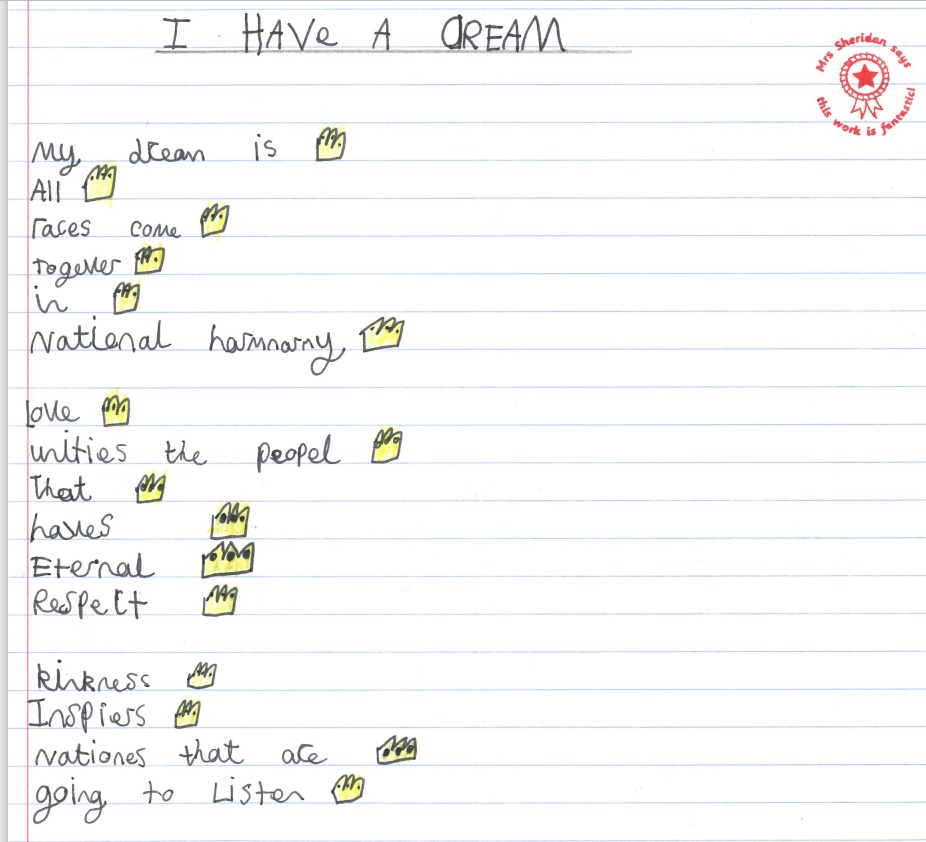 I HAVE A DREAM
Mrs Sheridan says
this work is fantastic!
My dream is
All
races come
Together
in
National harmnarny
Love
unities the peopel
that
haves
Eternal
Respect
kinkness
Inspiers
nationes that are
going to Listen